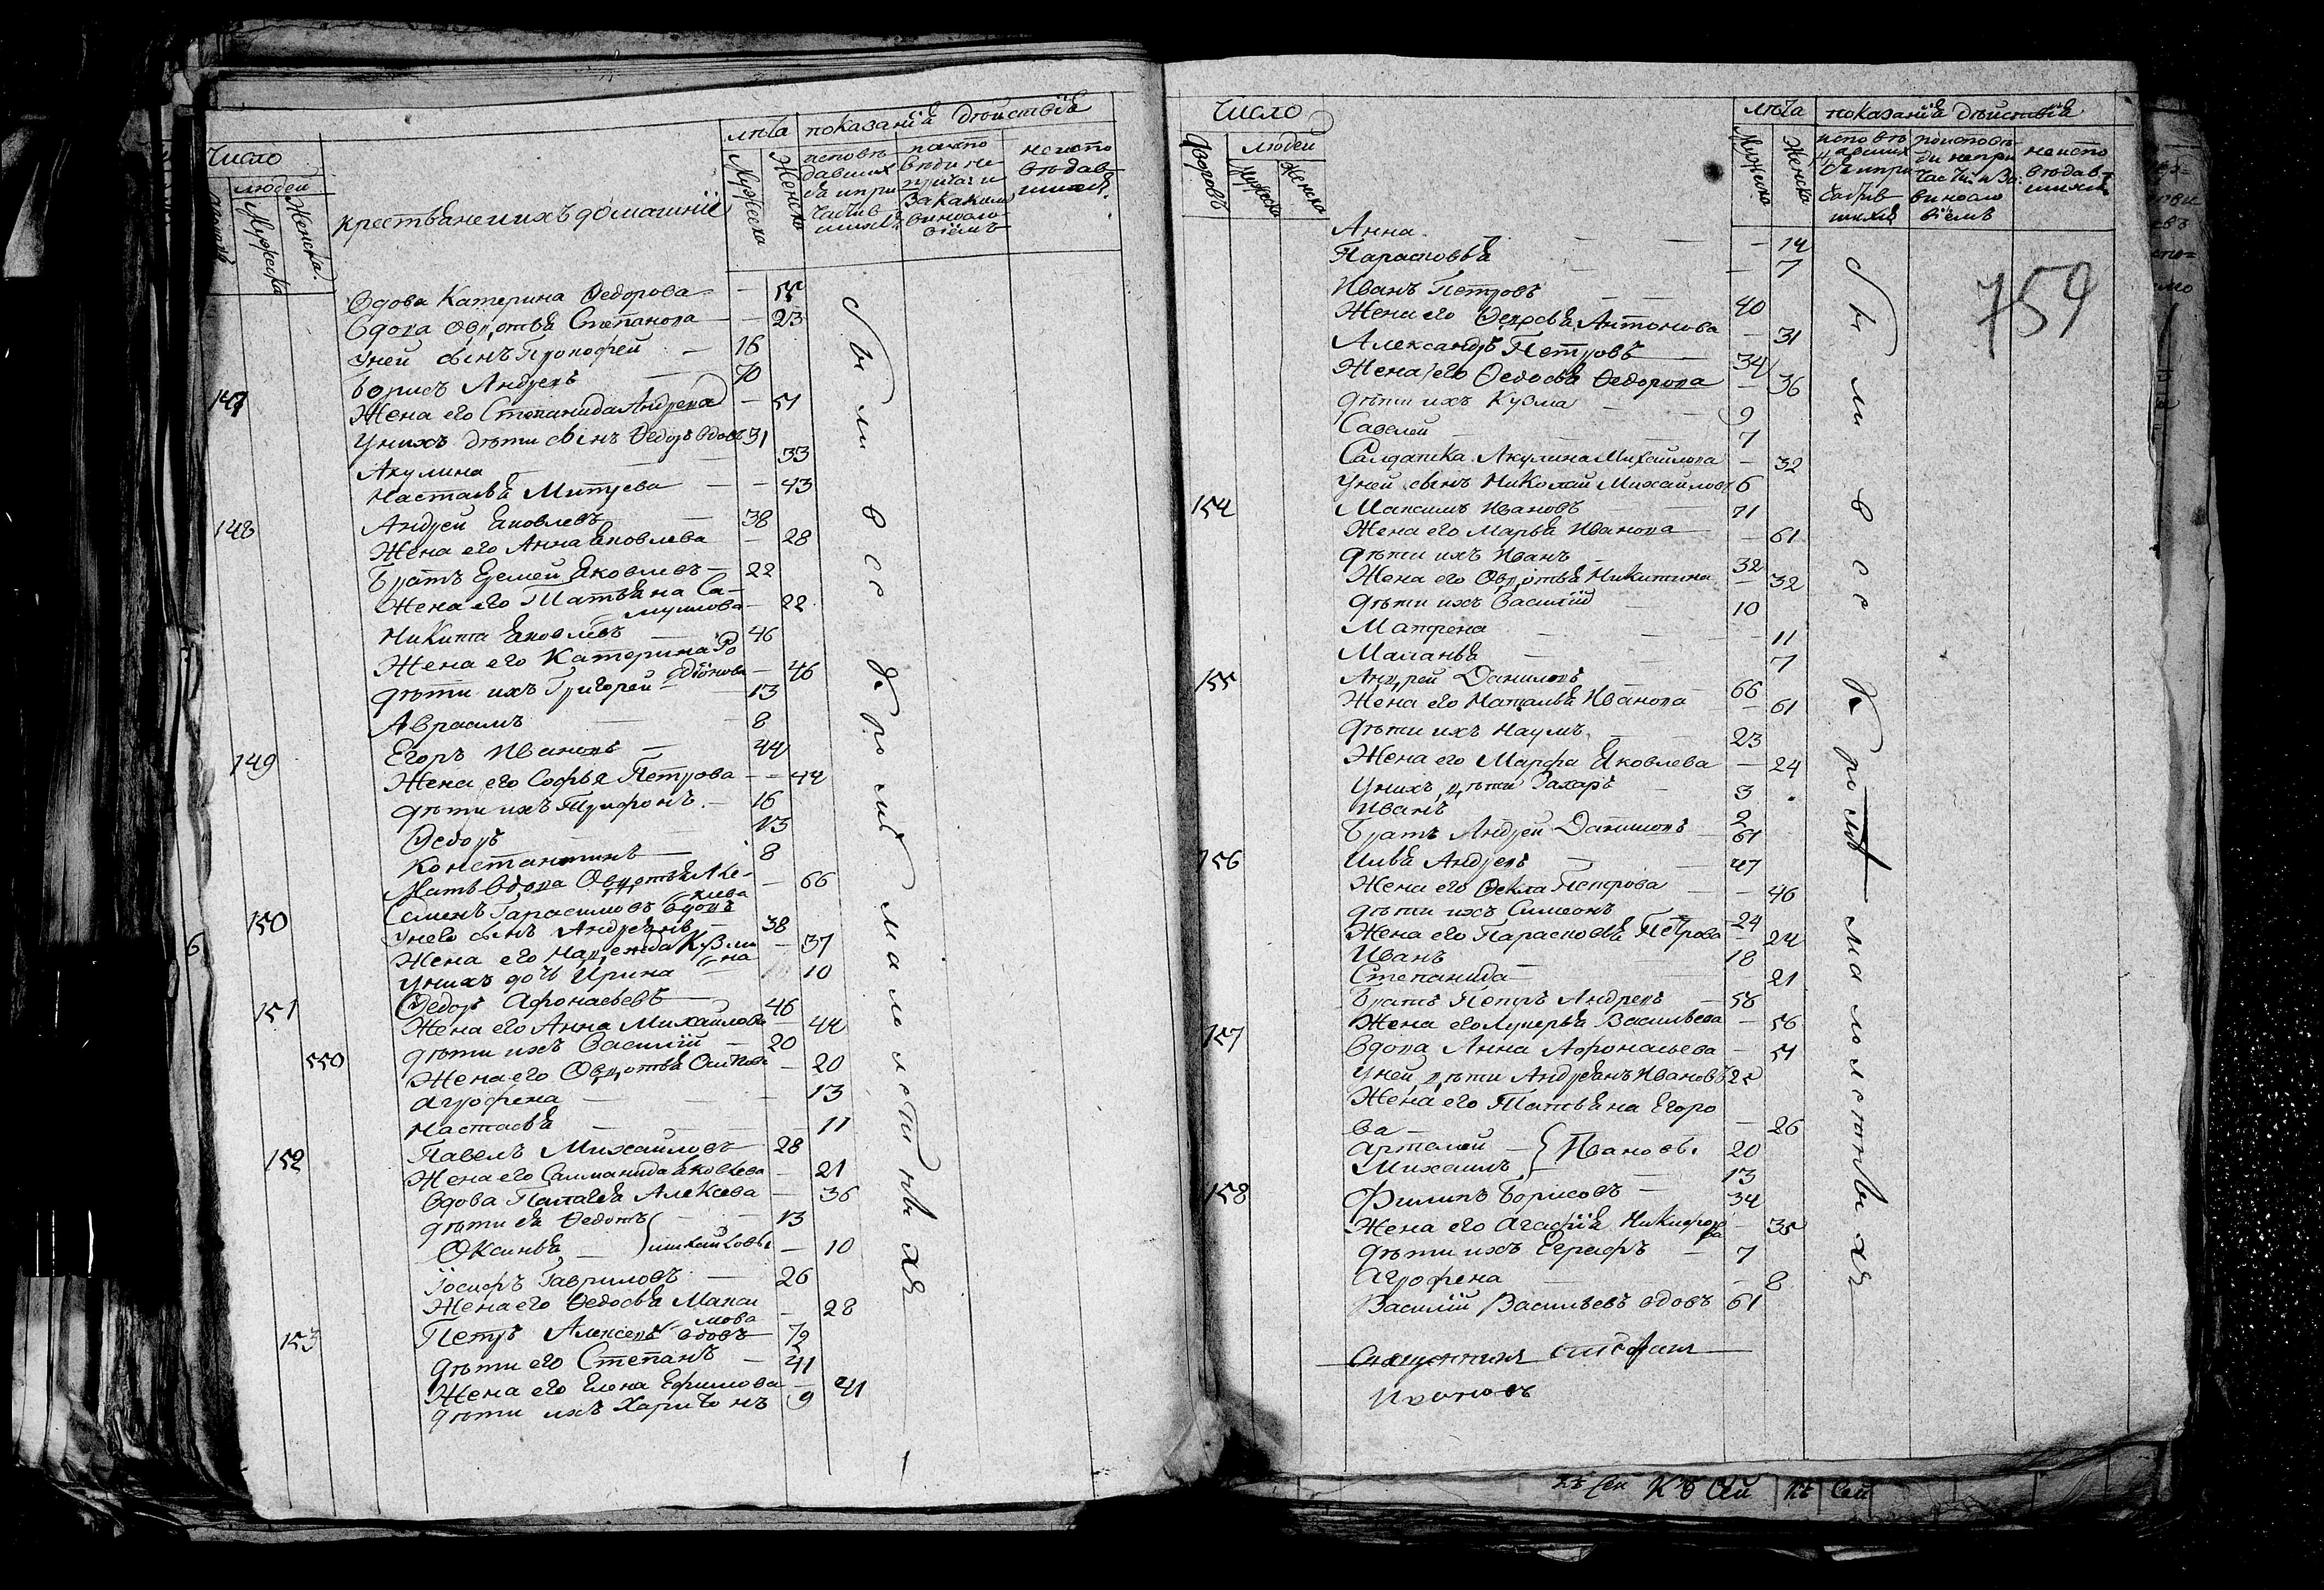 Число
людей
Мужеска
Женска
крестьяне и ихъ домашнїе
лѣта
Мужеска
Женска
показанїѧ дѣйствїѧ
исповѣ
давшихъ
сѧ и при
частив
шихсѧ
вѣди не
винословїемъ
неиспо
вѣдав
шихсѧ
Вдова Катерина Ѳедорова — 55
Вдова Овдотьѧ Степанова — 23
У ней сынъ Прокофей — 16
147 Борисъ Андреевъ 70
Жена его Степанида Андреева — 51
У нихъ дѣти сынъ Ѳедоръ вдовъ 31
Акулина — 33
Настасьѧ Митрева — 43
148 Андрей Ѧковлевъ — 38
Жена его Анна Ѧковлева — 28
Братъ Еремей Ѧковлевъ — 22
Жена его Татьѧна Са-
мулова — 22
Никита Ѧковлевъ — 46
Жена его Катерина Ро
дїонова — 46
дѣти ихъ Григорей — 13
Авраамъ — 8
149 Егоръ Ивановъ — 44
Жена его Софьѧ Петрова — 44
дѣти ихъ Трифонъ — 16
Ѳедоръ 13
Константинъ — 8
Мать вдова Овдотьѧ — 66
150 Семенъ Гарасимовъ вдовъ
У него сынъ Андреѧнъ — 38
Жена его Надежда Кузми
на — 37
У нихъ дочь Ирина — 10
151 Ѳедоръ Афонасьевъ — 46
Жена его Анна Михаилова — 44
дѣти ихъ Василїй — 20
550
Жена его Овдотьѧ Осипова — 20
Агрофена — 13
Настасьѧ — 11
152 Павелъ Михаиловъ — 28
Жена его Саламанида Ѧковлева — 21
Вдова Палагеѧ Алексева — 36
дѣти еѧ Ѳедотъ — 13
Оксиньѧ — 10
Їосифъ Гавриловъ — 26
Жена его Ѳедосьѧ Макси
мова — 28
153 Петръ Алексеевъ вдовъ — 72
дѣти его Степанъ — 41
Жена его Елена Ефимова — 41
дѣти ихъ Харитонъ 9
были всѣ кромѣ малолетныхъ
Число
Дворовъ
людей
Мужеска
Женска
лѣта
Мужеска
Женска
показанїѧ дѣйствїѧ
неиспо
вѣдав-
шихсѧ
759
Анна — 14
Парасковьѧ — 7
Иванъ Петровъ — 40
Жена его Антонова — 31
Александръ Петровъ — 34
Жена его Ѳедосьѧ Ѳедорова — 36
дѣти ихъ Кузма — 9
Савелей — 7
Салдатка Акулина Михаилова — 32
У ней сынъ Николай Михаиловъ 6
154 Максимъ Ивановъ 71
Жена его Марьѧ Иванова — 61
дѣти ихъ Иванъ — 32
Жена его Овдотьѧ Никитина — 32
дѣти ихъ Василїй 10
Матрена — 11
Маланьѧ — 7
155 Андрей Даниловъ 66
Жена его Натальѧ Иванова — 61
дѣти ихъ Наумъ — 23
Жена его Марфа Ѧковлева — 24
У нихъ дѣти Захаръ — 3
Иванъ 2
Братъ Андрей Даниловъ — 61
156 Ильѧ Андреевъ — 47
Жена его Ѳекла Петрова — 46
дѣти ихъ Симеонъ — 24
Жена его Парасковьѧ Петрова — 24
Иванъ 18
Степанида — 21
Братъ Петръ Андреевъ — 58
Жена его Лукерьѧ Васильева — 56
157 Вдова Анна Афонасьева — 51
У ней дѣти Андреѧнъ Ивановъ 25
Жена его Татьѧна Егоро
ва — 26
Арталей — } Ивановы 20
Михаилъ 13
158 Филипъ Борисовъ — 34
Жена его Агафїѧ Никифорова — 35
дѣти ихъ Еграфъ — 7
Агрофена — 8
Василїй Васильевъ вдовъ 61
были всѣ кромѣ малолетныхъ
Ивановъ
Къ Сей